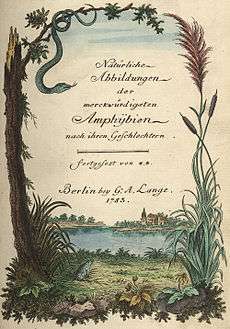 Natürliche
Abbildungen
der
merckwürdigsten
Amphybien
nach ihren Geschlechtern
fortgesetzt von
Berlin bey G. A. Lange.
1783.